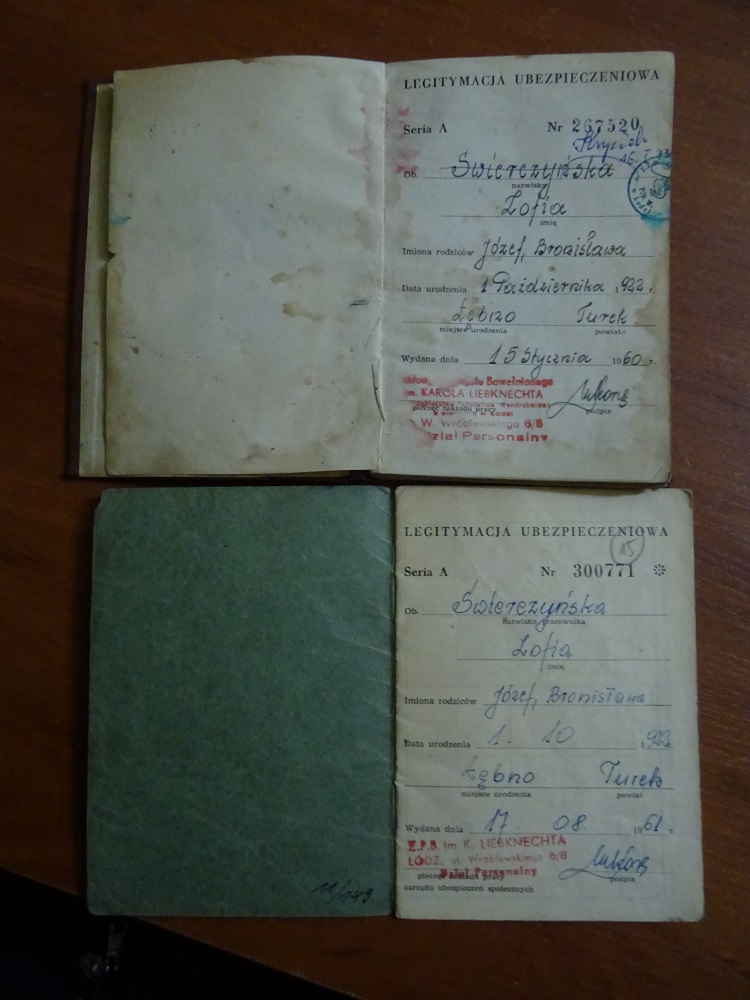 LEGITYMACJA UBEZPIECZENIOWA
Seria A Nr 267520
Ob. Świerczyńska
nazwisko
Zofia
imię
Imiona rodziców Józef, Bronisława
Data urodzenia 1 Października 1922 r.
Turek
miejsce urodzenia powiat
Wydana dnia 15 Stycznia 1960 r.
Bawełnianego
im. KAROLA LIEBKNECHTA
pieczęć zakładu pracy podpis
W. Wróblewskiego 6/8
Dział Personalny
LEGITYMACJA UBEZPIECZENIOWA
15
Seria A Nr 300771
Ob. Świerczyńska
Nazwisko pracownika
Zofia
imię
Imiona rodziców Józef, Bronisława
Data urodzenia 1. 10 1922
Turek
miejsce urodzenia powiat
Wydana dnia 17 08. 1961 r.
Z.P.B. im. K. LIEBKNECHTA
ŁÓDŹ, ul. Wróblewskiego 6/8
Dział Personalny
pieczęć zakładu pracy podpis
zarządu ubezpieczeń społecznych
11/149.